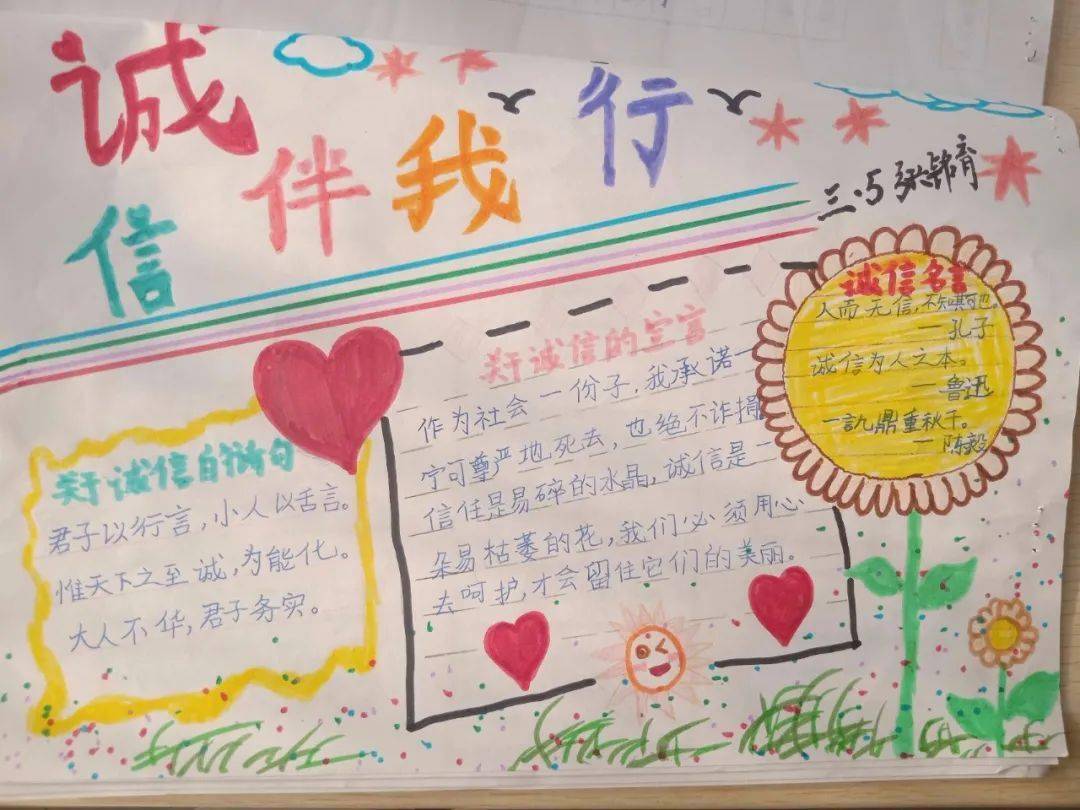 诚信伴我行
三.5
诚信名言
人而无信,不知其可也。
—孔子
诚信为人之本。
—鲁迅
一言九鼎重秋千。
—陈毅
关于诚信的宣言
作为社会一份子,我承诺一
宁可尊严地死去,也绝不诈捐
信任是易碎的水晶,诚信是一
朵易枯萎的花,我们必须用心
去呵护,才会留住它们的美丽。
关于诚信的诗句
君子以行言,小人以舌言。
惟天下之至诚,为能化。
大人不华,君子务实。